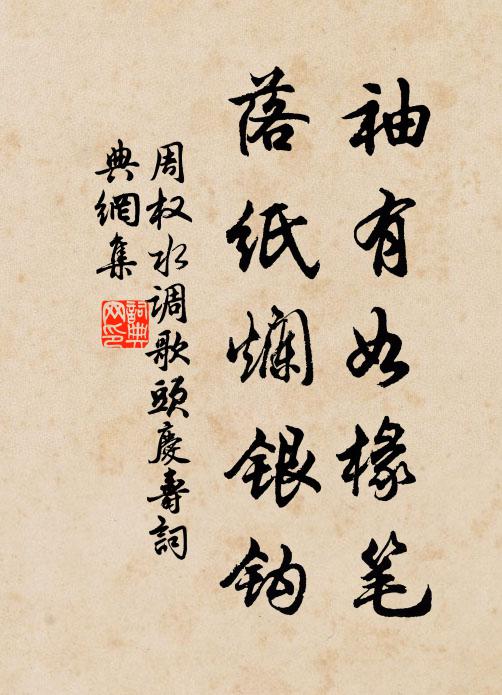 袖有如椽笔
落纸烂银钩
周权水调歌头庆寿词
典網集
詞典网印